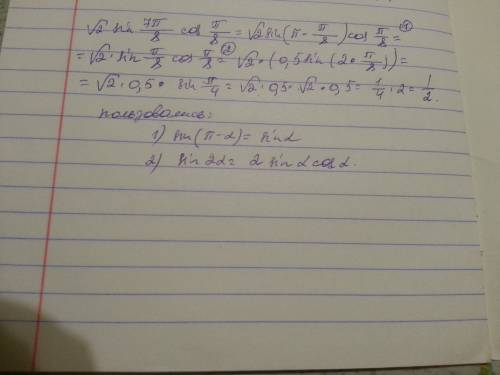 √2 sin 7π/8 cos π/8 = √2 sin(π - π/8) cos π/8 = ①
= √2 · sin π/8 cos π/8 = ② √2 · (0,5 sin(2 · π/8)) =
= √2 · 0,5 · sin π/4 = √2 · 0,5 · √2 · 0,5 = 1/4 · 2 = 1/2.
пользовались:
1) sin(π-α) = sin α
2) sin 2α = 2 sin α cos α.